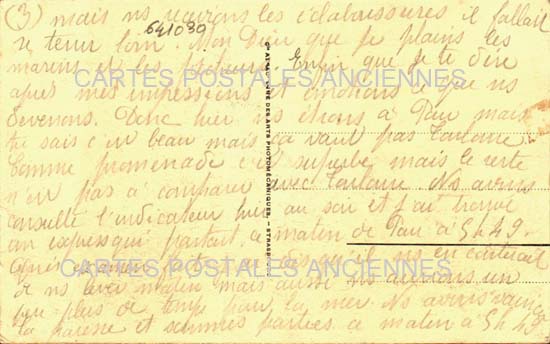 (3) mais ns recevions les éclaboussures il fallait
se tenir loin. Mon Dieu que je plains les
marins et les pêcheurs. Enfin que je te dire
après mes impressions et émotions ce que ns
devenons. Donc hier ns étions à Pau mais
tu sais c'est beau mais ça vaut pas Toulouse.
Comme promenade c'est superbe mais le reste
n'est pas à comparer avec Toulouse. Ns avions
consulté l'indicateur hier au soir et j'ai trouvé
un express qui partait ce matin de Pau à 5h49.
ns en coûterait
de ns lever matin mais aussi ns aurions un
peu plus de temps pour la mer. Ns avons vaincu
la paresse et sommes parties ce matin à 5h49
641039
CARTES POSTALES ANCIENNES
CARTES POSTALES ANCIENNES
DES ARTS PHOTOMÉCANIQUES. - STRASB